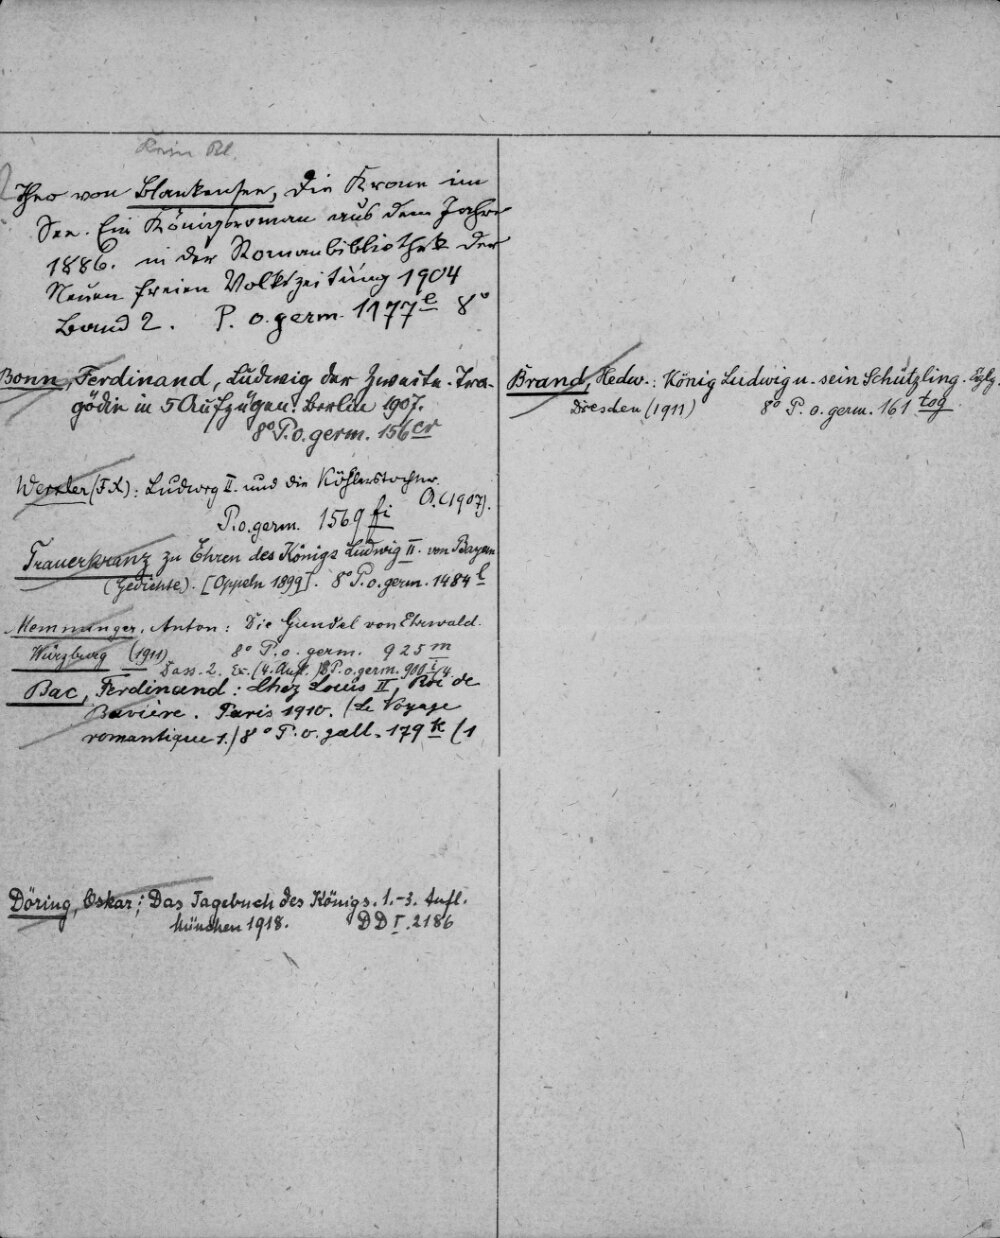 Kein Bl.
Theo von Blankensee, Die Krone im
See. Ein Königsroman aus dem Jahre
1886. in der Romanbibliothek der
Neuen freien Volkszeitung 1904
Band 2. P. o. germ. 1177 e 8°
Bonn, Ferdinand, Ludwig der Zweite. Tra-
gödie in 5 Aufzügen. Berlin 1907.
8° P. o. germ. 156 cr
(F. X.): Ludwig II. und die Köhlerstochter.
(1907).
P. o. germ. 1569 fi
Trauerkranz zu Ehren des Königs Ludwig II. von Bayern
(Gedichte). [Oppeln 1899]. 8° P. o. germ. 1484 l
Memminger, Anton: Die Gundel von Ehrwald.
Würzburg (1911) 8° P. o. germ. 925 m
Dass. 2. Ex. (4. Aufl.) 8° P. o. germ. 900 i/4
Bac, Ferdinand: Chez Louis II, Roi de
Bavière. Paris 1910. (Le Voyage
romantique 1.) 8° P. o. gall. 179 k (1
Döring, Oskar: Das Tagebuch des Königs. 1.-3. Aufl.
München 1918. DD I. 2186
Brand, Hedw.: König Ludwig u. sein Schützling. Erzlg.
Dresden (1911) 8° P. o. germ. 161 tog